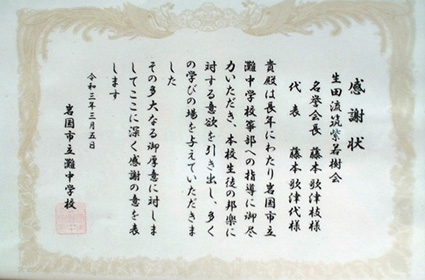 感謝状
生田流筑紫若樹会
名誉会長 藤本歌津枝様
代表 藤本歌津代様
貴殿は長年にわたり岩国市立
灘中学校箏部への指導に御尽
力いただき、本校生徒の邦楽に
対する意欲を引き出し、多く
の学びの場を与えていただきま
した
その多大なる御厚意に対しま
してここに深く感謝の意を表
します
令和三年三月五日
岩国市立灘中学校